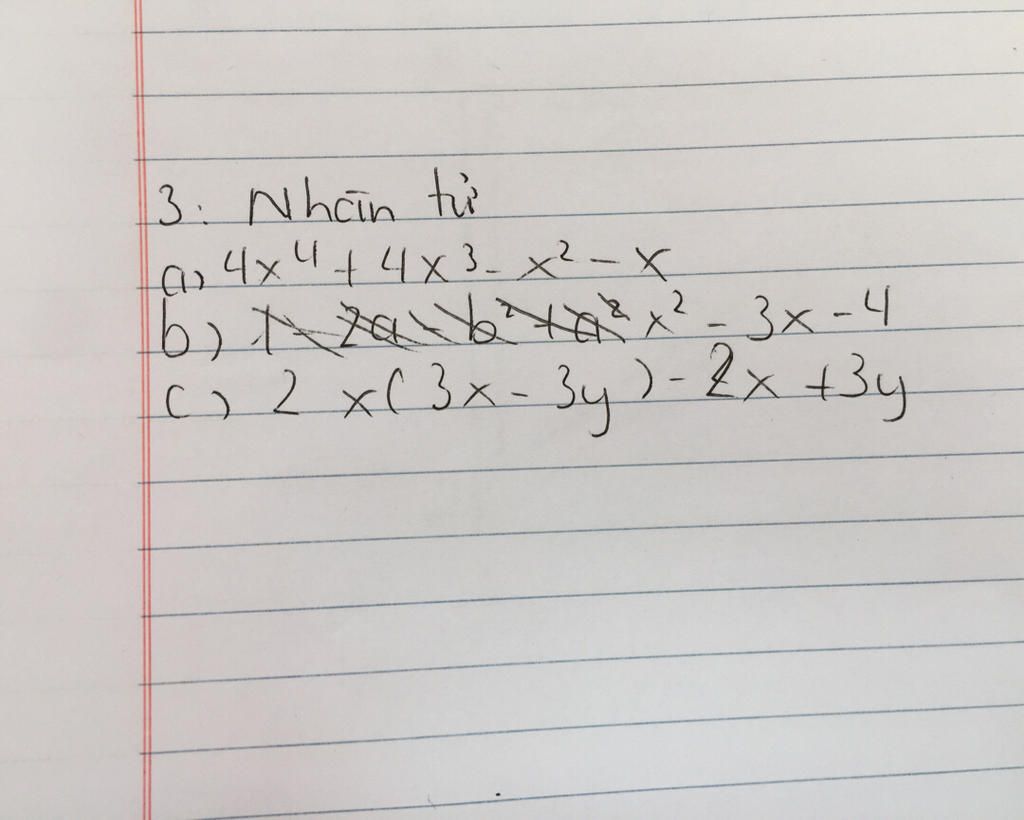 3. Nhān tử
a) 4x⁴ + 4x³ - x² - x
b) 1 - 2a - b² + a² x² - 3x - 4
c) 2 x(3x - 3y) - 2x + 3y